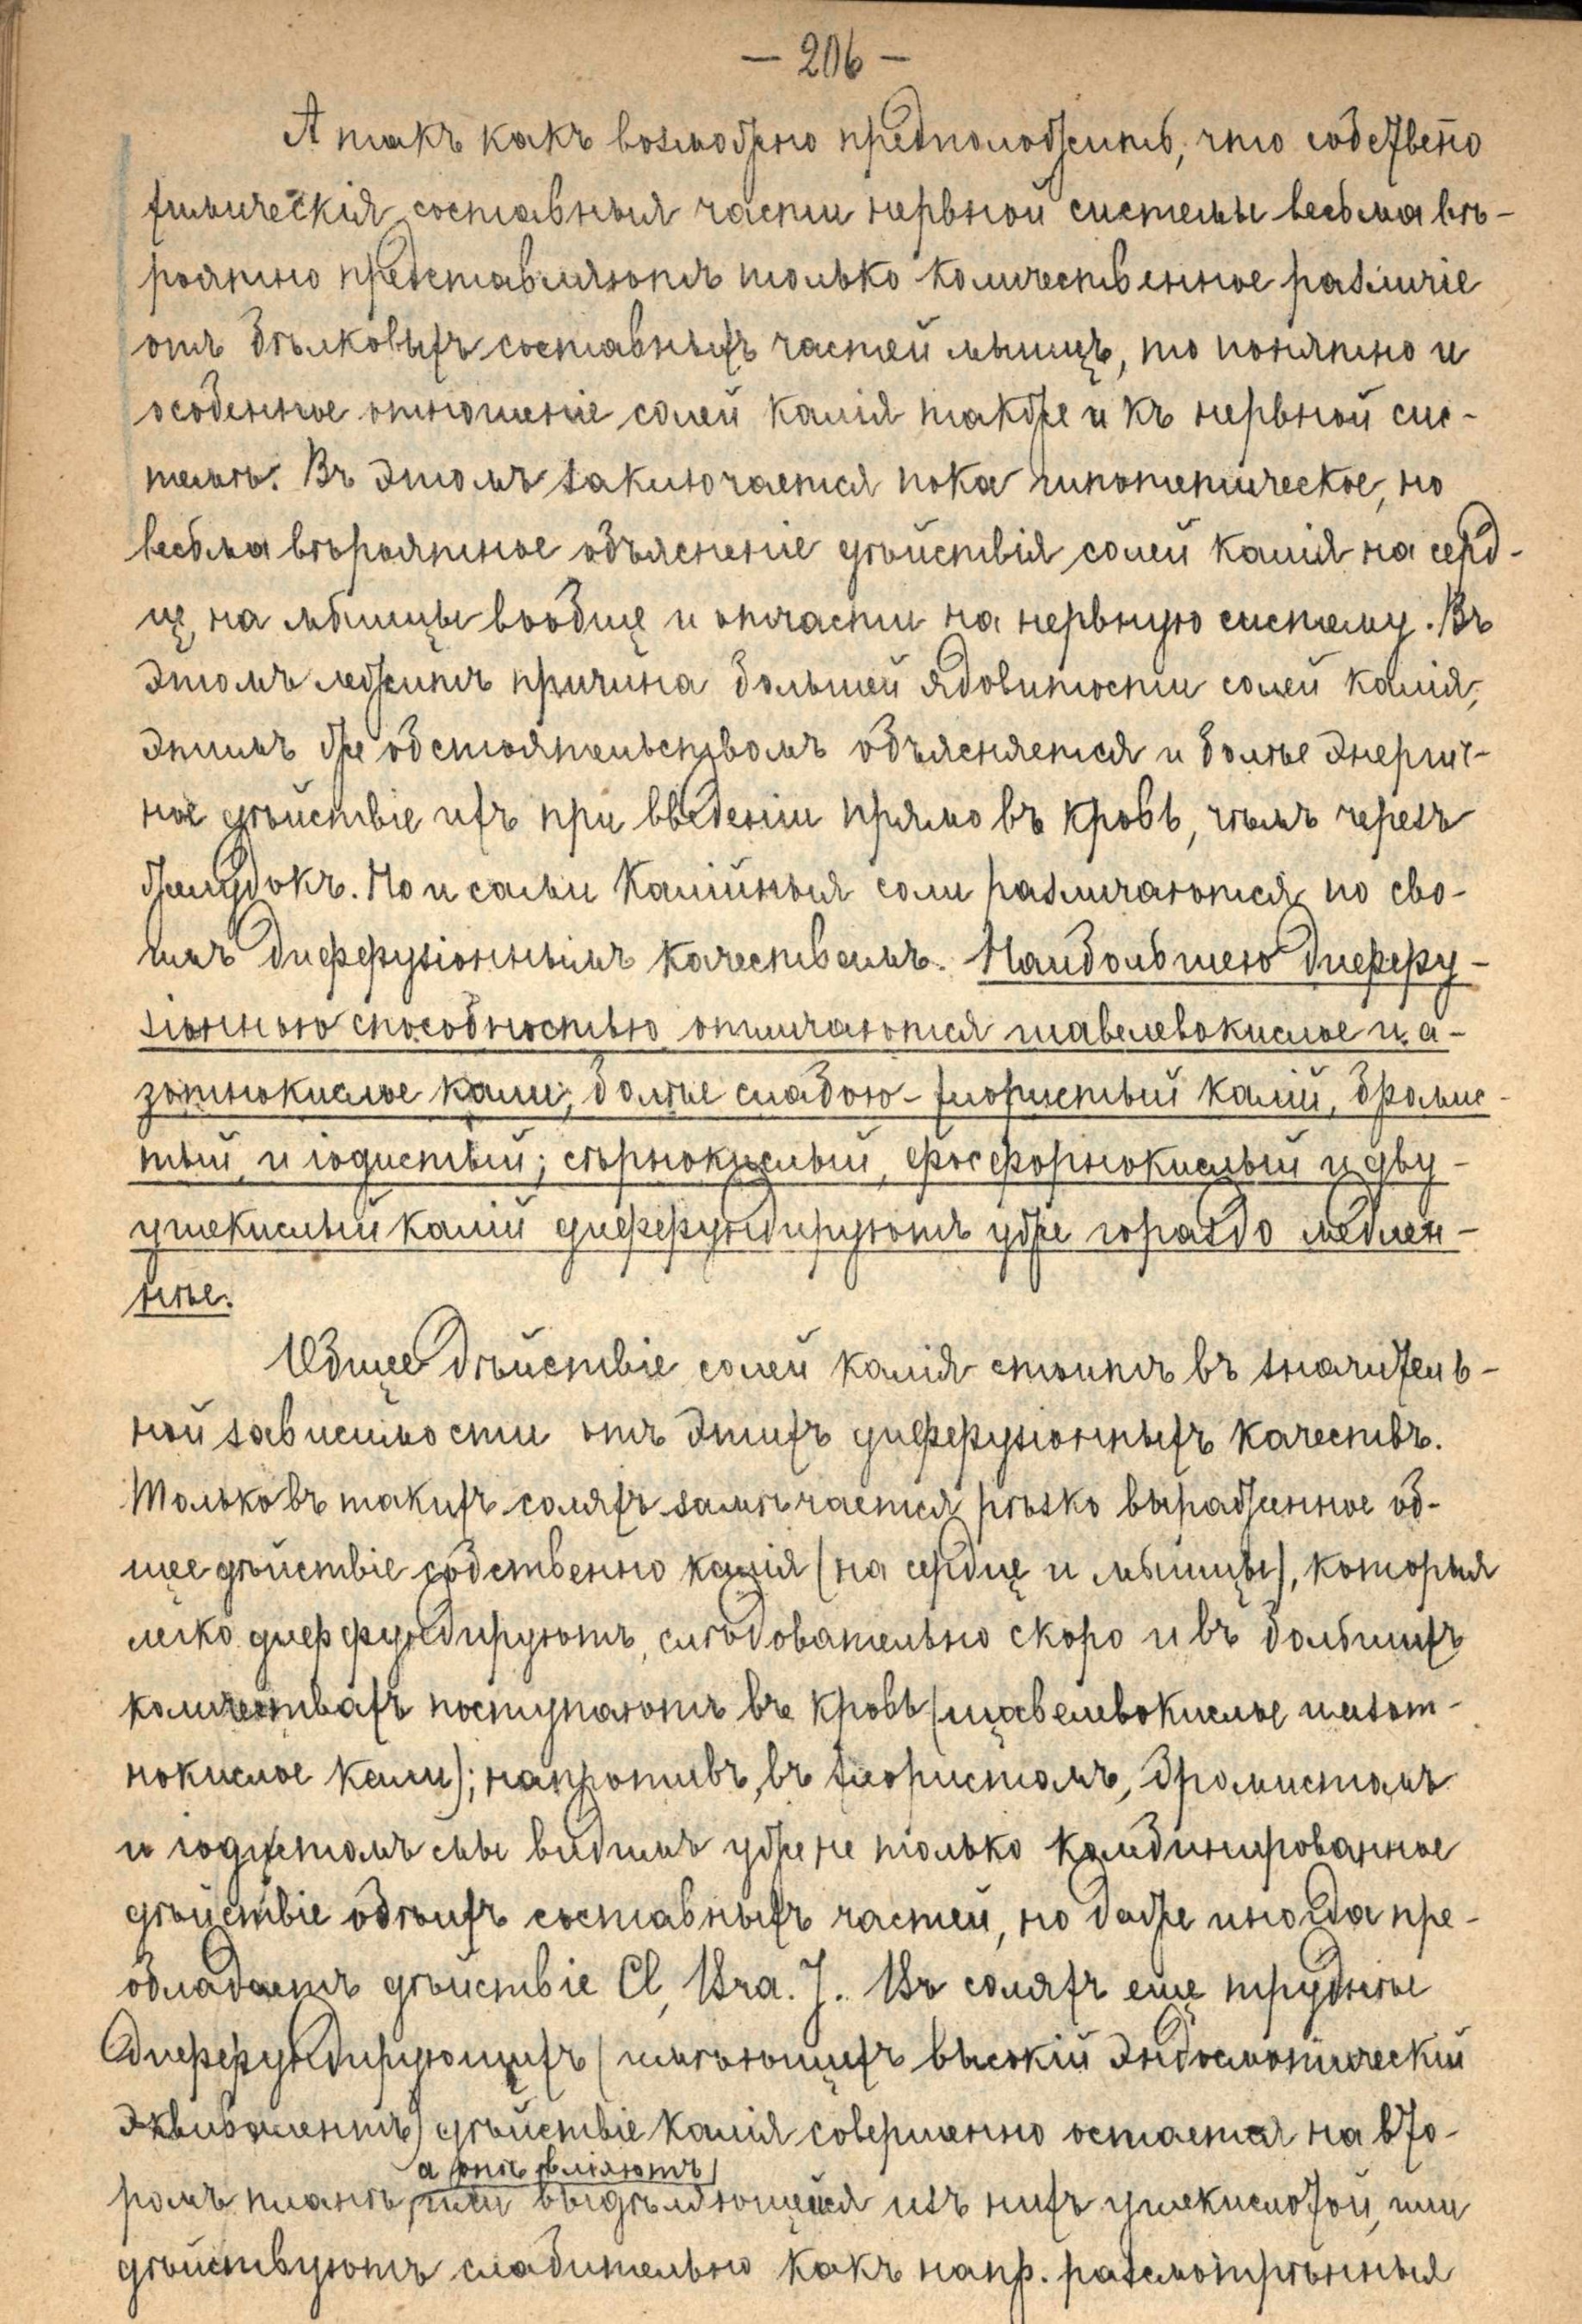 — 206 —
А такъ какъ возможно предположить, что собствено
химическія составныя части нервной системы весьма вѣ-
роятно представляютъ только количественное различіе
отъ бѣлковыхъ составныхъ частей мышцъ, то понятно и
особенное отношеніе солей калія также и къ нервной сис-
темѣ. Въ этомъ заключается пока гипотетическое, но
весьма вѣроятное объясненіе дѣйствія солей калія на серд-
це, на мышцы вообще и отчасти на нервную систему. Въ
этомъ лежитъ причина большей ядовитости солей калія;
этимъ же обстоятельствомъ объясняется и болѣе энергич-
ное дѣйствіе ихъ при введеніи прямо въ кровь, чѣмъ черезъ
желудокъ. Но и сами Калійныя соли различаются по сво-
имъ диффузіоннымъ качествамъ. Наибольшею диффу-
зіонною способностью отличаются щавелевокислое и а-
зотнокислое кали; болѣе слабою – хлористый калій, бромис-
тый, и іодистый; сѣрнокислый, фосфорнокислый и дву-
углекислый калій диффундируютъ уже гораздо медлен-
нѣе.
Общее дѣйствіе солей калія стоитъ въ значитель-
ной зависимости отъ этихъ диффузіонныхъ качествъ.
Только въ такихъ соляхъ замѣчается рѣзко выраженное об-
щее дѣйствіе собственно калія (на сердце и мышцы), которыя
легко диффундируютъ, слѣдовательно скоро и въ большихъ
количествахъ поступаютъ въ кровь (щавелевокислое и азот-
нокислое кали); напротивъ, въ хлористомъ, бромистомъ
и іодистомъ мы видимъ уже не только комбинированное
дѣйствіе обѣихъ составныхъ частей, но даже иногда пре-
обладаетъ дѣйствіе Cl, Br. J. Въ соляхъ еще труднѣе
диффундирующихъ (имѣющихъ высокій эндосмотическій
эквивалентъ) дѣйствіе калія совершенно остается на вто-
а онѣ вліяютъ
ромъ планѣ, или выдѣляющейся изъ нихъ углекислотой, или
дѣйствуютъ слабительно какъ напр. разсмотрѣнныя